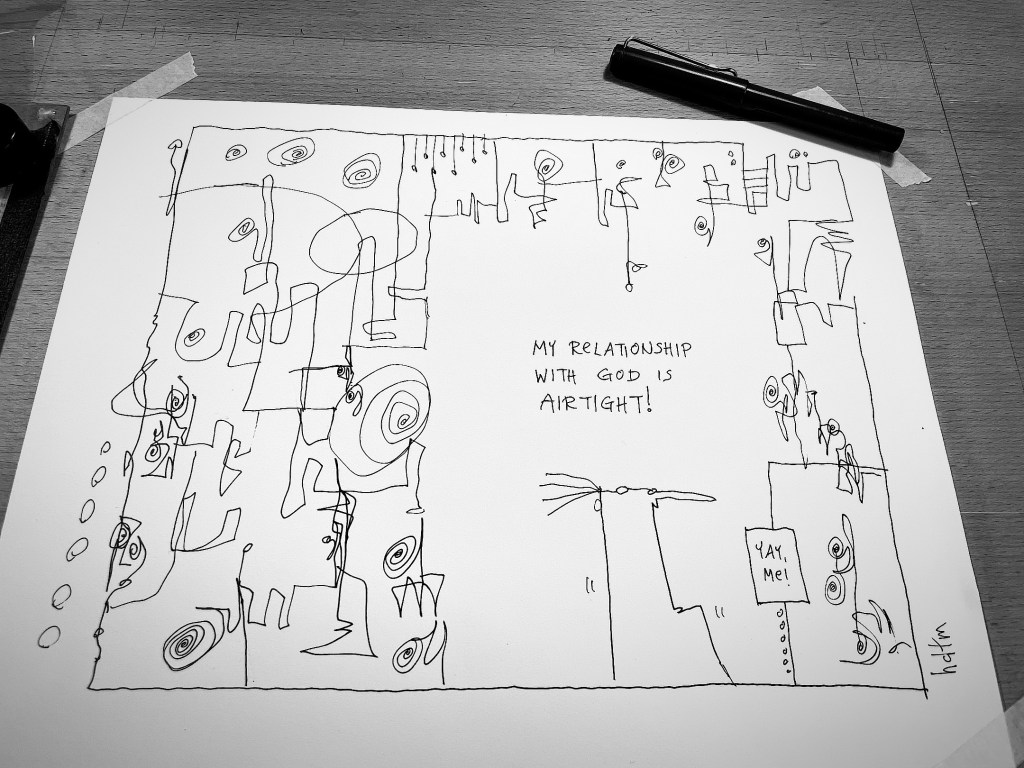 MY RELATIONSHIP
WITH GOD IS
AIRTIGHT!
YAY,
Me!
hdtm